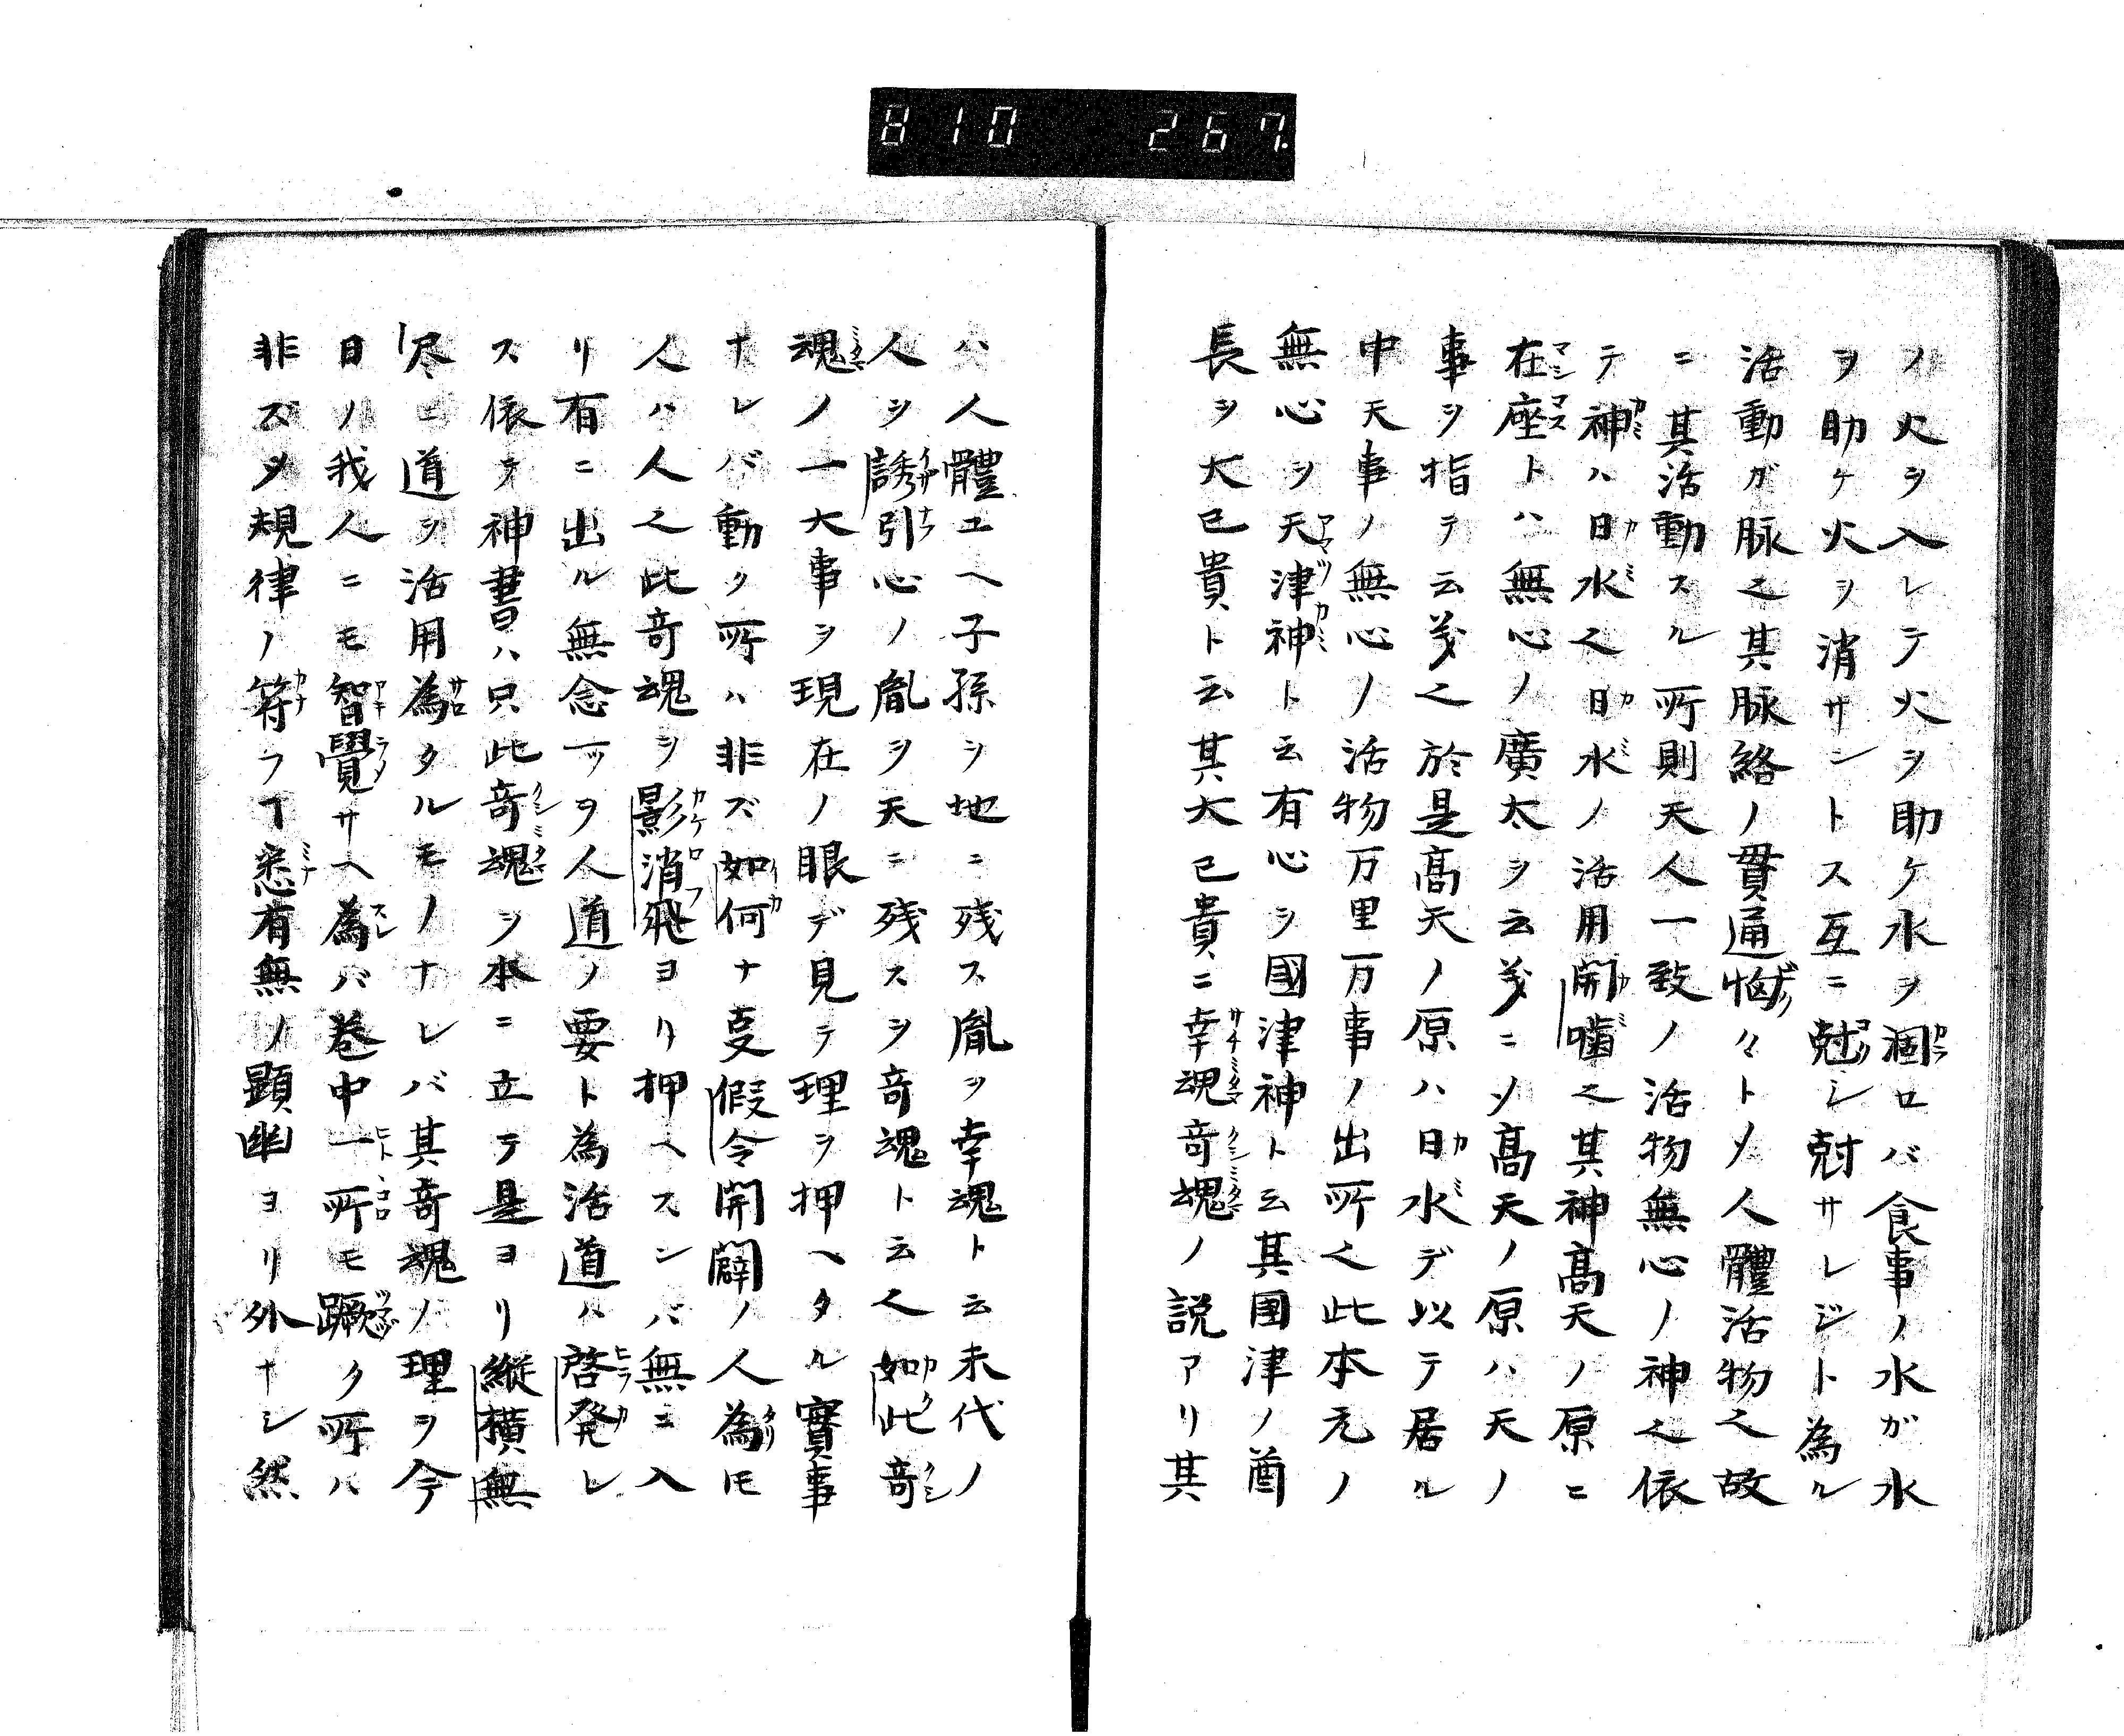 810 267.
ノ火ヲ入レテ火ヲ助ケ水ヲ涸ロバ食事ノ水ガ水
ヲ助ケ火ヲ消サントス互ニ尅シ尅サレジト為ル
活動ガ脉也其脉絡ノ貫通悩々トメ人體活物之故
ニ其活動スル所則天人一致ノ活物無心ノ神之依
テ神ハ日水之日水ノ活用開嚙之其神髙天ノ原ニ
在座トハ無心ノ廣太ヲ云茅ニソ髙天ノ原ハ天ノ
事ヲ指テ云茅之於是髙天ノ原ハ日水デ以テ居ル
中天事ノ無心ノ活物万里万事ノ出所之此本元ノ
無心ヲ天津神ト云有心ヲ國津神ト云其國津ノ酋
長ヲ大已貴ト云其大已貴ニ幸魂竒魂ノ説アリ其
ハ人體ユヘ子孫ヲ地ニ残ス胤ヲ幸魂ト云末代ノ
人ヲ誘引心ノ胤ヲ天ニ残スヲ竒魂ト云之如此竒
魂ノ一大事ヲ現在ノ眼デ見テ理ヲ押ヘタル實事
ナレバ動ク所ハ非ズ如何ナ支假令開闢ノ人為モ
人ハ人之此竒魂ヲ影消飛ヨリ押ヘスンバ無ニ入
リ有ニ出ル無念一ツヲ人道ノ要ト為活道ハ啓発レ
ス依テ神書ハ只此竒魂ヲ本ニ立テ是ヨリ縦横無
尽ニ道ヲ活用為タルモノナレバ其竒魂ノ理ヲ今
日ノ我人ニモ智覺サヘ為バ巻中一所モ蹶ク所ハ
非ズヲ規律ノ符フヿ悉有無ノ顕幽ヨリ外ナシ然